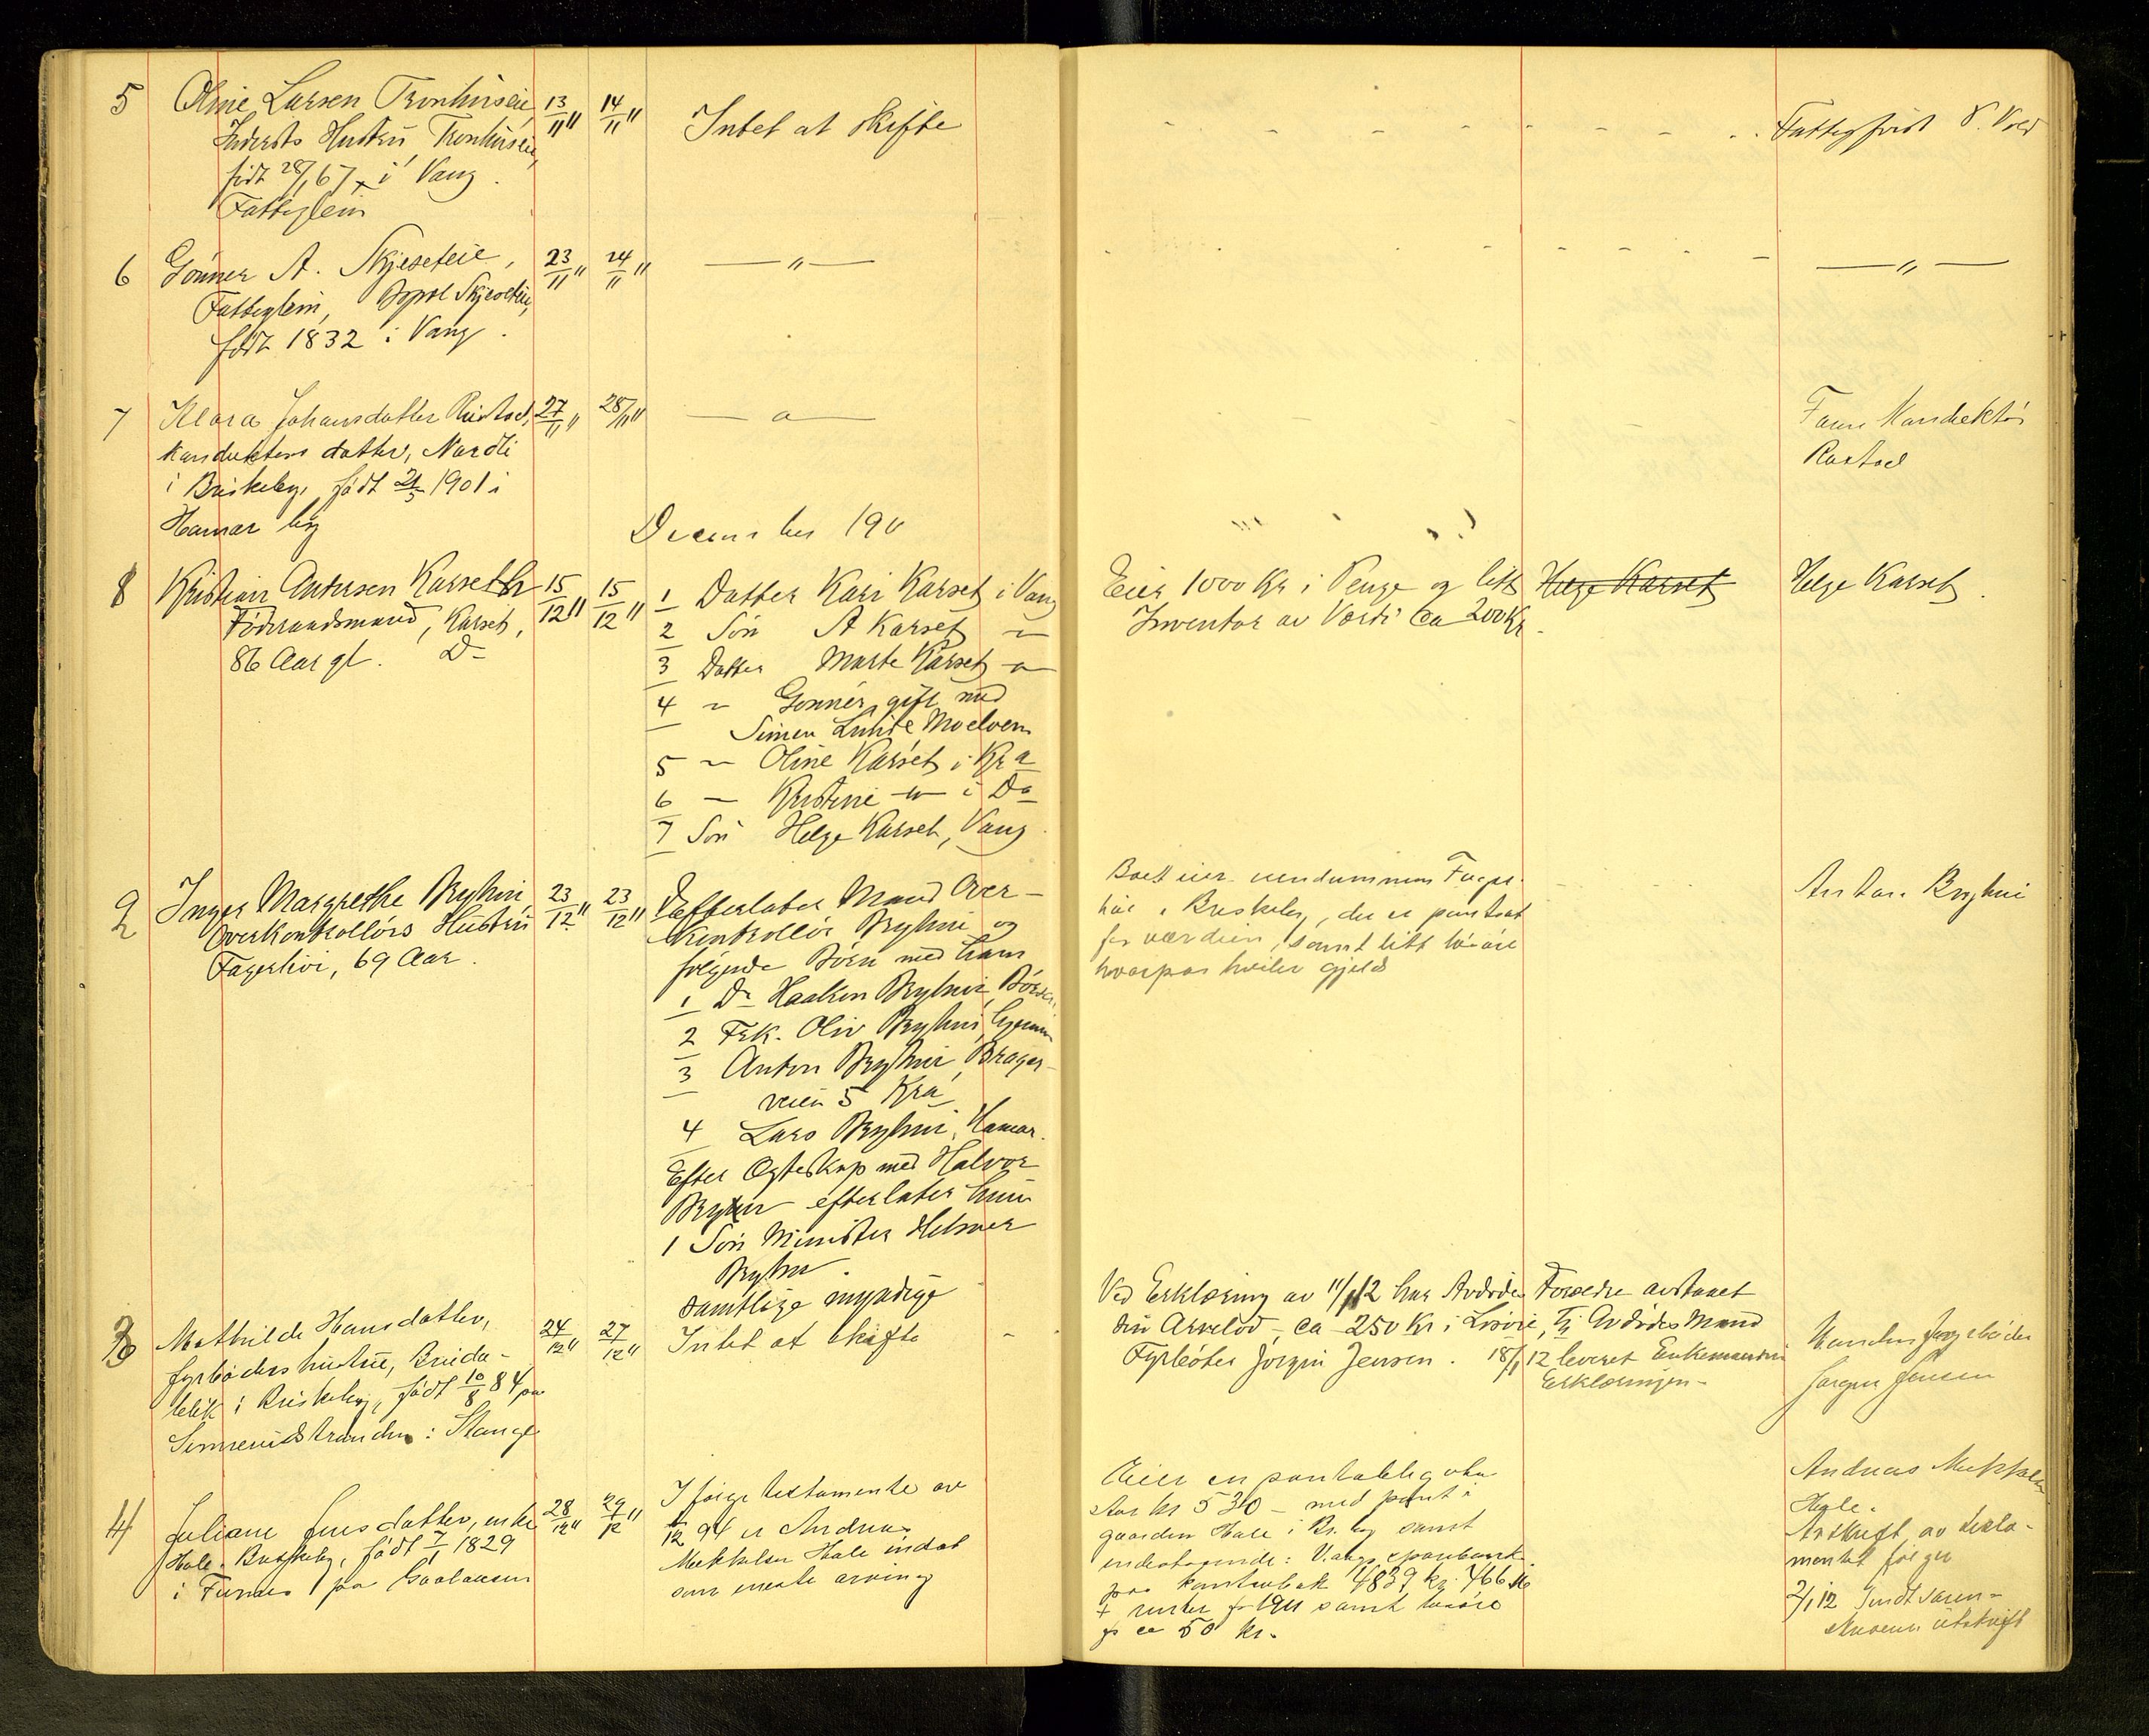 5 Oline Larsen Tronhuseie, 13/11 " 14/11 " Intet at skifte - - - - - - - - Fattigforst. P. Vold
Indersts Hustru Tronhuseie,
født 28/1 67 i Vang.
Fatteglem
6 Gunner A. Skjeseteie, 23/11 " 24/11 " — " — - - - - - - — " —
Fatteglem, Skjeseteie,
født 1832 i Vang.
7 Klara Johansdatter Rustad, 27/11 " 28/11 " — " — Faren Konduktør
Konduktørs datter, Nordli Rustad
i Briskeby, født 21/5 1901 i
Hamar by
December 19
8 Kristian Andersen Karset 15/12 " 15/12 " 1 Datter Kari Karset i Vang Eier 1000 Kr i Penge og litt Helge Karset Helge Karset.
Føderaadsmand, Karset, 2 Søn A Karset " Inventar av Værdi Ca 200 Kr.
86 Aar gl. Do 3 Datter Marte Karset "
4 " Gunner, gift med
Simen Lunde Moelven
5 " Oline Karset i Kra
6 " Kristine " i Do
7 Søn Helge Karset, Vang
2 Inger Margrethe Bryhni, 23/12 " 23/12 " Efterlater Mand Over- Boet eier eiendommen Fager- Anton Bryhni
Overkontrollørs Hustru kontrollør Bryhni og li i Briskeby, der er pantsat
Fagerlivi, 69 Aar. følgende Børn med ham for værdien, samt litt løsøre
1 Dr Haakon Bryhni, hvorpaa hviler gjeld
2 Frk. Oliv Bryhni,
3 Anton Bryhni, Brager-
veien 5 Kra
4 Lars Bryhni, Hamar.
Efter Ægteskap med Halvor
Bryhni efterlater hun
1 Søn Minister Helmer
Bryhn.
samtlige myndige
3 Mathilde Hansdatter, 24/12 " 27/12 " Intet at skifte - Ved Erklæring av 11/1 12 har Avdødes Forældre avstaaet
fyrbøders hustru, Breida- sin Arvelod - ca 250 Kr i Løsøre, til Avdødes Mand
blik i Briskeby, født 10/8 84 paa Fyrbøter Jørgen Jensen. 18/1 12 leveret Enkemanden Manden fyrbøder
i Stange Erklæringen - Jørgen Jensen
4 Juliane Jensdatter, enke 28/12 " 29/12 " Ifølge testamente av Eier en pantobligation Andreas Mikkelsen
Hole Briskeby, født 7/1 1829 /12 94 er Andreas stor kr 530 - med pant i Hole.
i Furnes paa Mikkelsen Hole indsat gaarden Hole i Br. by samt Avskrift av testa-
som eneste arving indestaaende i Vangs sparebank mentet følger
paa kontrabok 4839 kr. 466.16 2/1 12 Sendt soren-
+ renter for 1911 samt løsøre skriveren utskrift
for ca 50 kr.